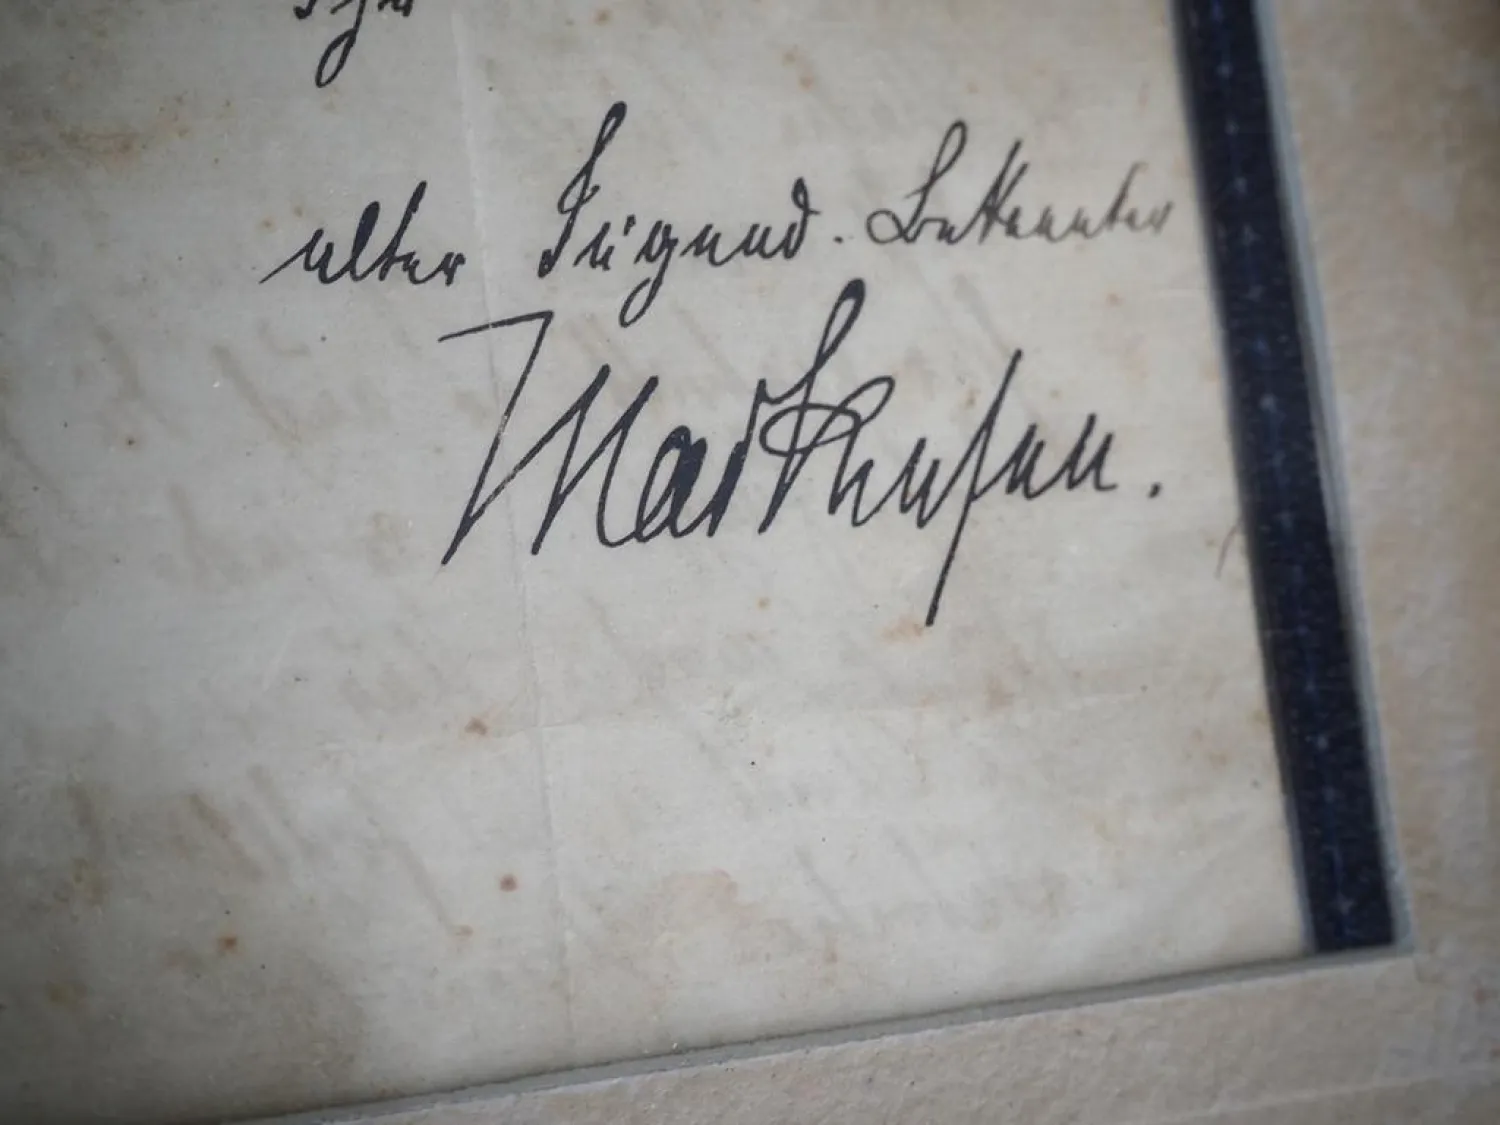 Ihr
alter Jugend-Bekannter
Markhusen.